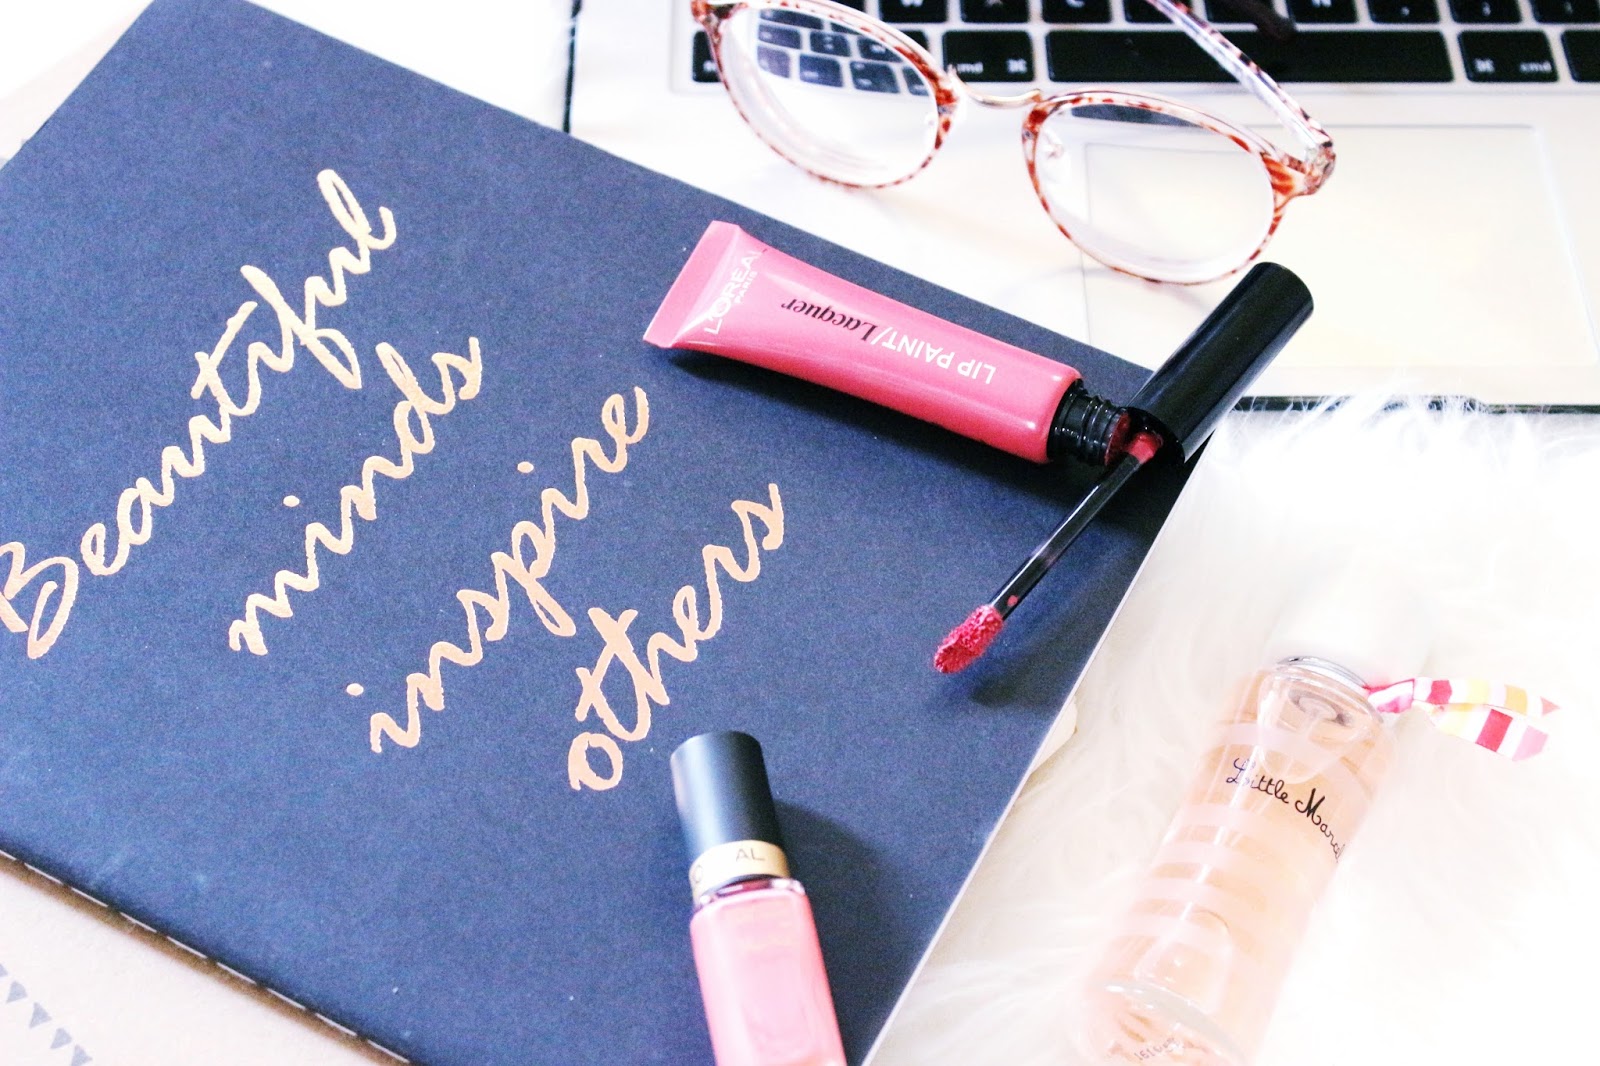 Beautiful
minds
inspire
others
L'ORÉAL
PARIS
LIP PAINT/Lacquer
AL
Little Marcel
cmd ⌘
⌘ cmd